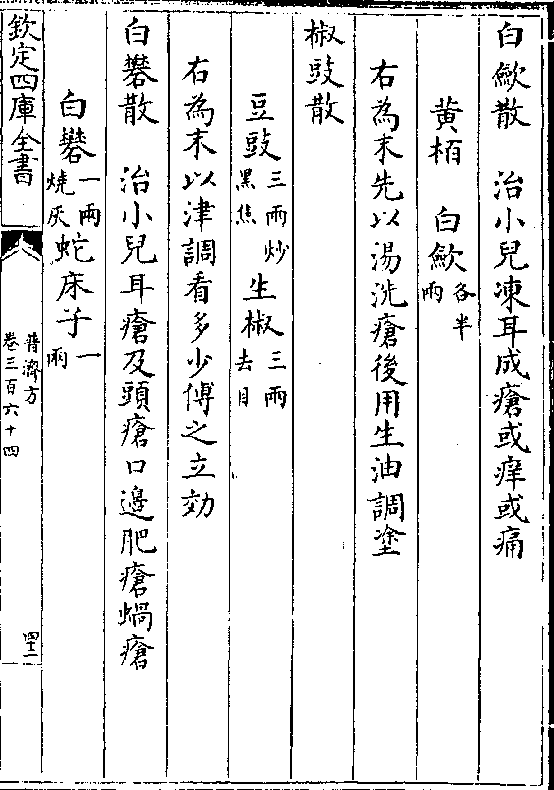 白歛散　治小兒凍耳成瘡或痒或痛
黄栢　白歛各半兩
右為末先以湯洗瘡後用生油調塗
椒豉散
豆豉三兩炒黑焦　生椒三兩去目
右為末以津調看多少傅之立効
白礬散　治小兒耳瘡及頭瘡口邊肥瘡蝸瘡
白礬一兩燒灰　蛇床子一兩
欽定四庫全書
普濟方
卷三百六十四
四十二